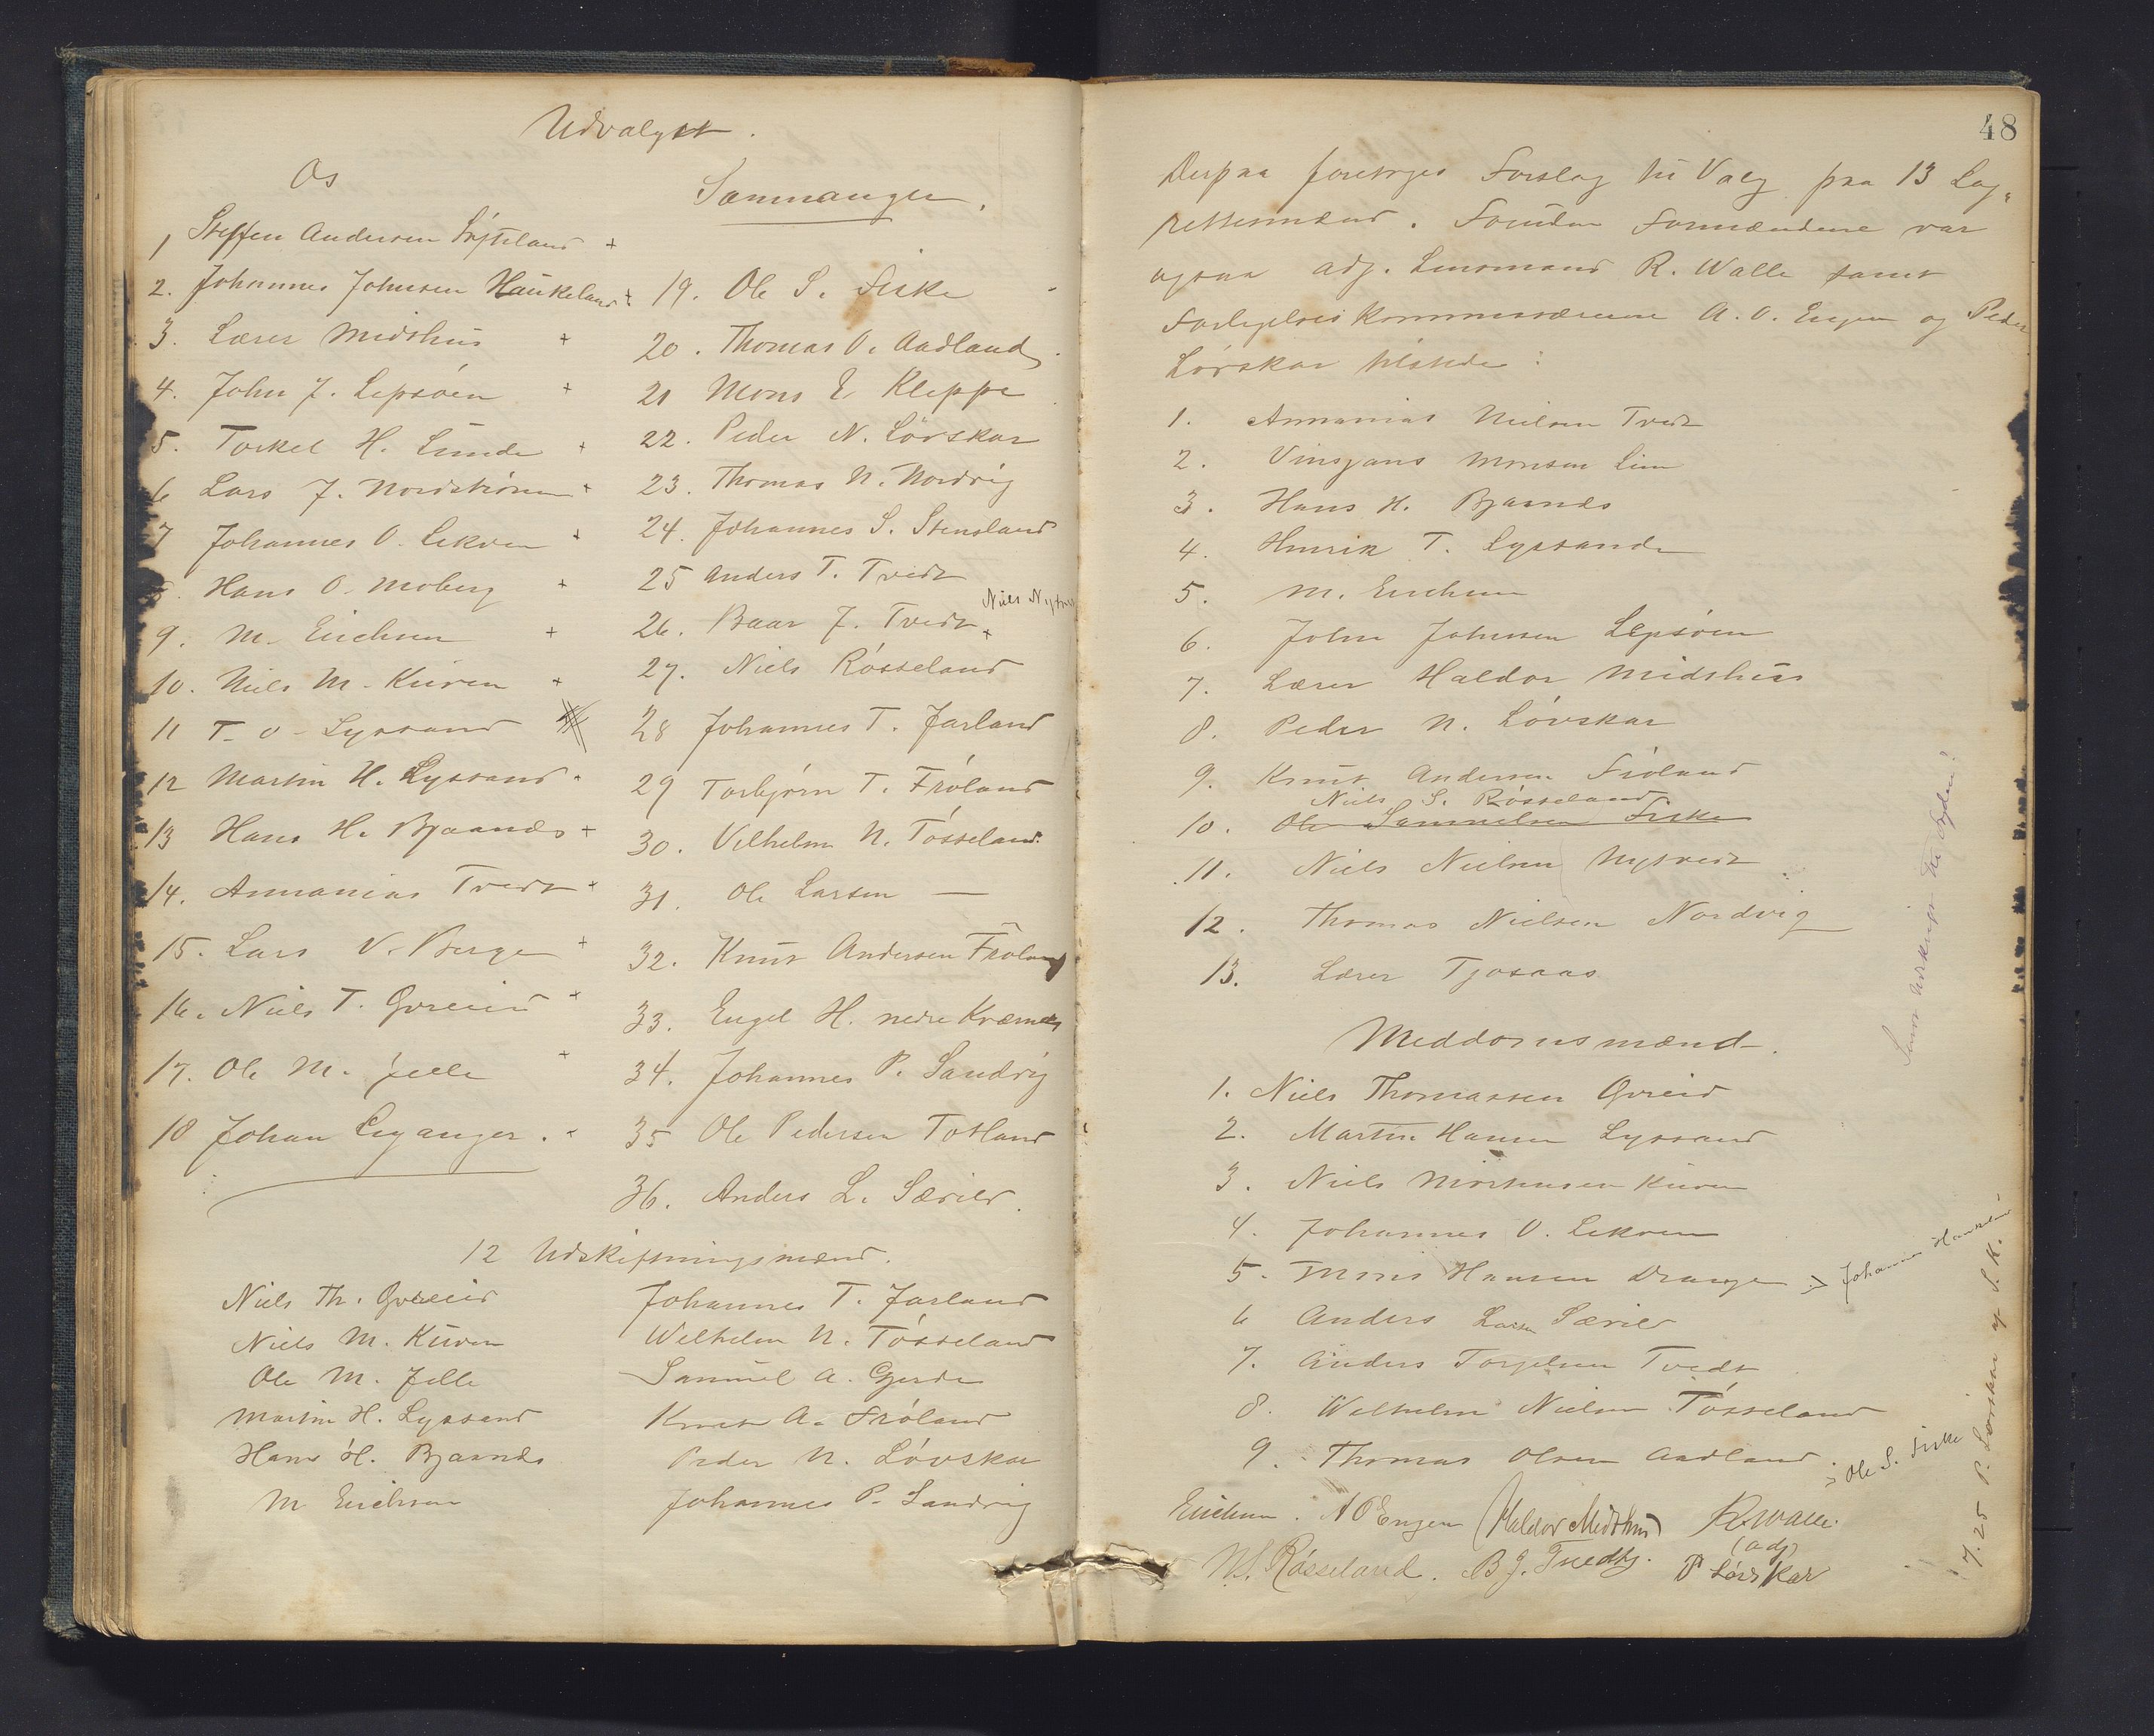 Udvalgte.
Os
1 Steffen Andersen Søfteland +
2. Johannes Johnsen Haukeland +
3. Lærer Midthus +
4. John J. Lepsøen +
5. Torkel H. Lunde +
6 Lars J. Nordstrønen +
7 Johannes O. Lekven +
8. Hans O. Moberg +
9. M. Erichsen +
10. Niels M. Kuven +
11 T. O. Lyssand
12 Martin H. Lyssand +
13 Hans H. Bjaanæs +
14. Annanias Tvedt +
15. Lars V. Berge +
16. Niels T. Gvreid +
17. Ole M. Jelle +
18 Johan Leganger. +
Sammanger.
19. Ole S. Fiske
20. Thomas O. Aadland
21 Mons E Kleppe
22. Peder N. Løvskar
23. Thomas N. Nordvig
24. Johannes S. Stensland
25 Anders T. Tvedt
26. Baar J. Tvedt +
27. Niels Røsseland
28 Johannes T. Jarland
29 Torbjørn T. Frøland
30. Vilhelm N. Tøsseland
31. Ole Larsen —
32. Knut Andersen Frøland
33. Engel H. nedre Kværnes
34. Johannes P. Sandvig
35 Ole Pedersen Totland
36. Anders L. Særvold.
12 Udskiftningsmænd.
Niels Th. Gvreid
Niels M. Kuven
Ole M. Jelle
Martin H. Lyssand
Hans H. Bjaanæs
M Erichsen
Johannes T. Jarland
Wilhelm N. Tøsseland
Samuel A. Gjerde
Knut A. Frøland
Peder N. Løvskar
Johannes P. Sandvig
48
Derpaa foretoges Forslag til Valg paa 13 Lag-
rettesmænd. Foruden Formændene var
ogsaa adj. Lensmand R. Walle samt
Forligelseskommissærerne A. O. Engen og Peder
Løvskar tilstede:
1. Annanias Nielsen Tvedt
2. Vinsjans Monsen Lien
3. Hans H. Bjaanæs
4. Henrik T. Lyssand
5. M. Erichsen
6. John Johnsen Lepsøen
7. Lærer Haldor Midthus
8. Peder N. Løvskar
9. Knut Andersen Frøland
Niels S. Røsseland
10. Ole Samuelsen Fiske
11. Niels Nielsen Nytvedt
12. Thomas Nielsen Nordvig
13. Lærer Tjosaas
Meddomsmænd.
1. Niels Thomassen Gvreid
2. Martin Hansen Lyssand
3. Niels Mikkelsen Kuven
4. Johannes O. Lekven
5. Mons Hansen Drange > Johannes Haukeland
6 Anders Larsen Særvold
7. Anders Torgelsen Tvedt
8. Wilhelm Nielsen Tøsseland
9. Thomas Olsen Aadland.
> Ole S. Fiske
Erichsen. A O Engen Haldor Midthus R. Walle.
(adj)
N. S. Røsseland. B J. Tvedt. P Løvskar
7.25 P. Løvskar af S. K.